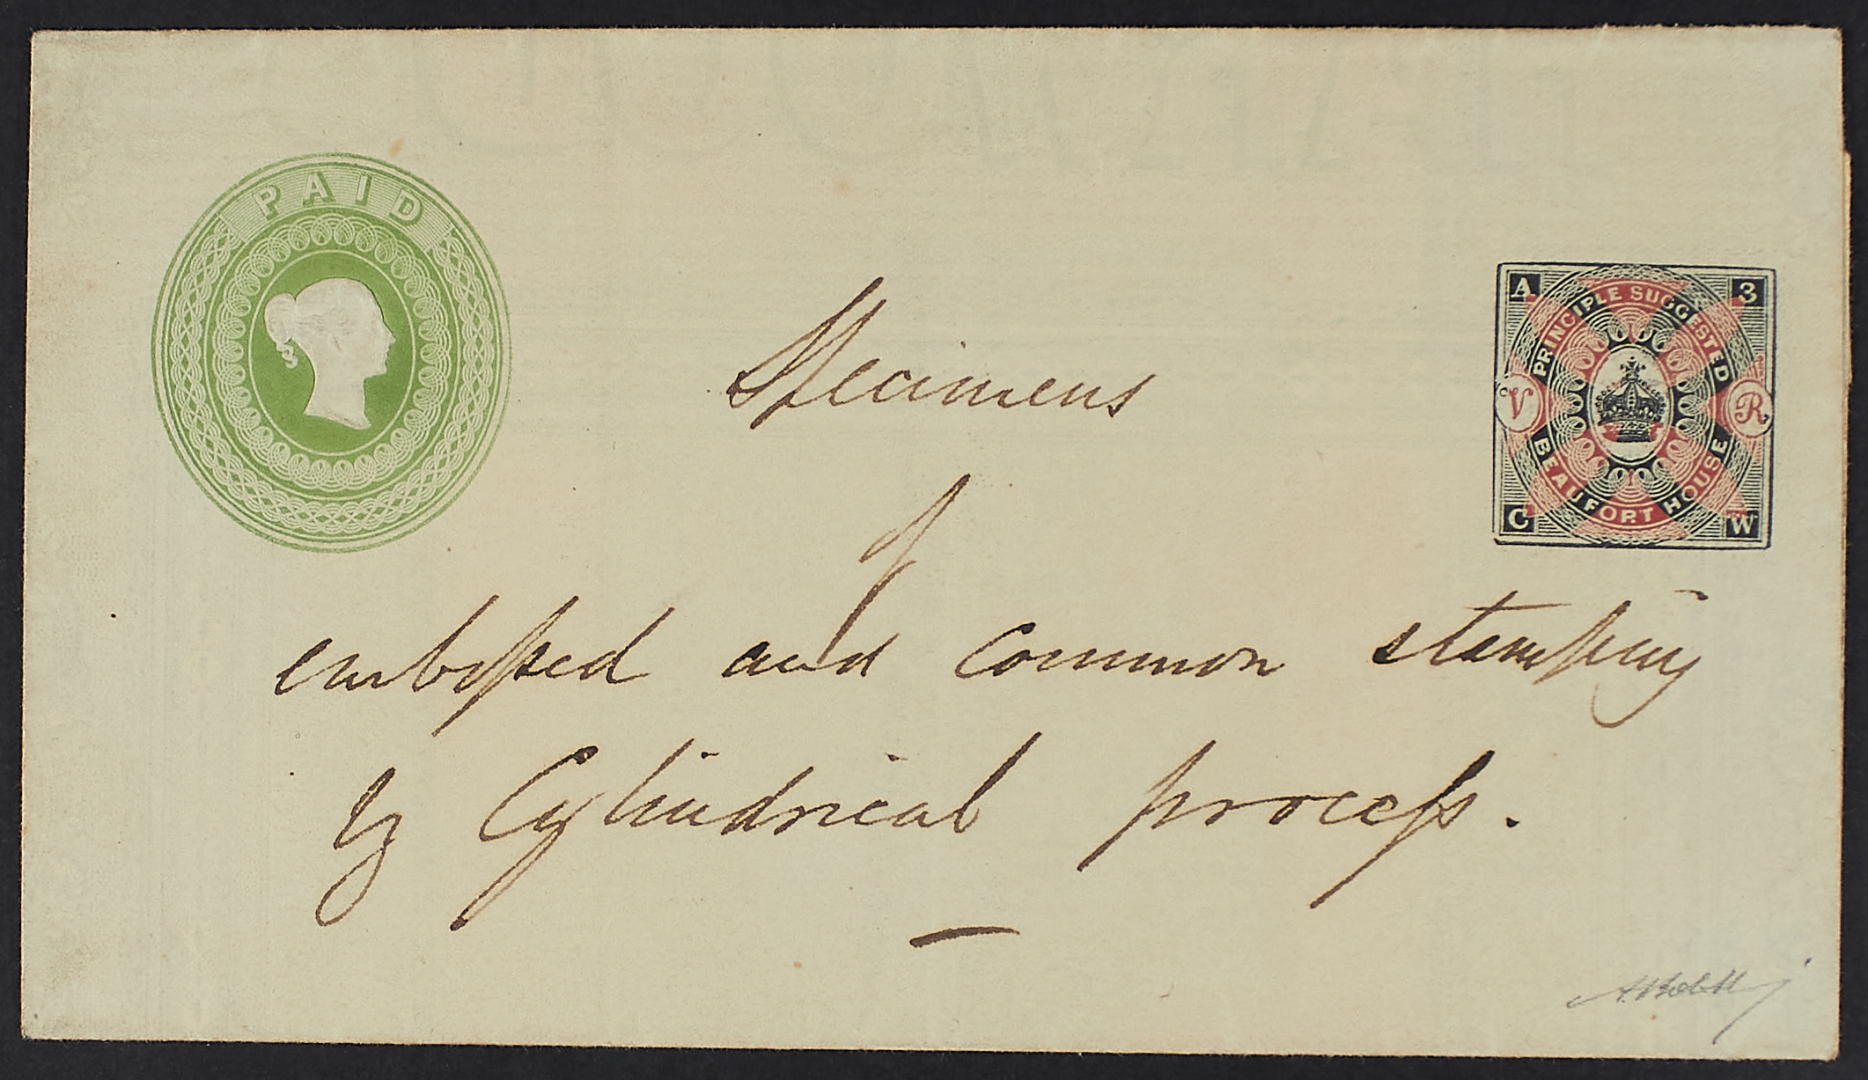 PAID
A 3
PRINCIPLE SUGGESTED
V R
BEAUFORT HOUSE
C W
Specimens
of
embossed and common stamping
by Cylindrical process.